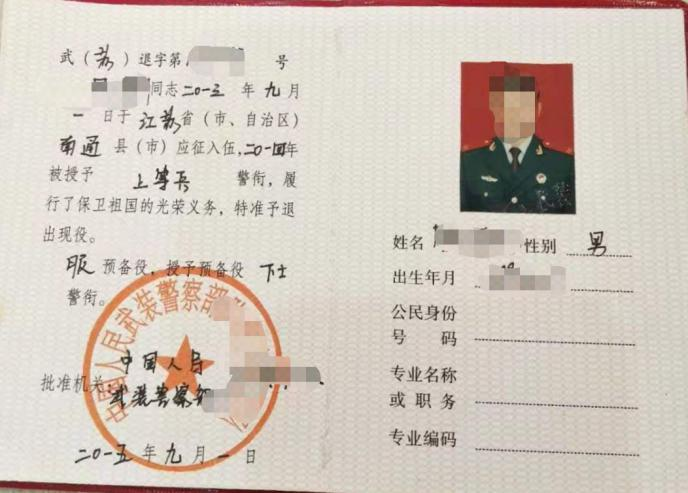 武（苏）退字第 号
同志二〇一三年九月
一日于江苏省（市、自治区）
南通县（市）应征入伍，二〇一四年
被授予 上等兵 警衔，履
行了保卫祖国的光荣义务，特准予退
出现役。
服预备役，授予预备役 下士
警衔。
中国人民武装警察部
批准机关：中国人民
武装警察
二〇一五年九月一日
姓名 性别 男
出生年月
公民身份
号码
专业名称
或职务
专业编码